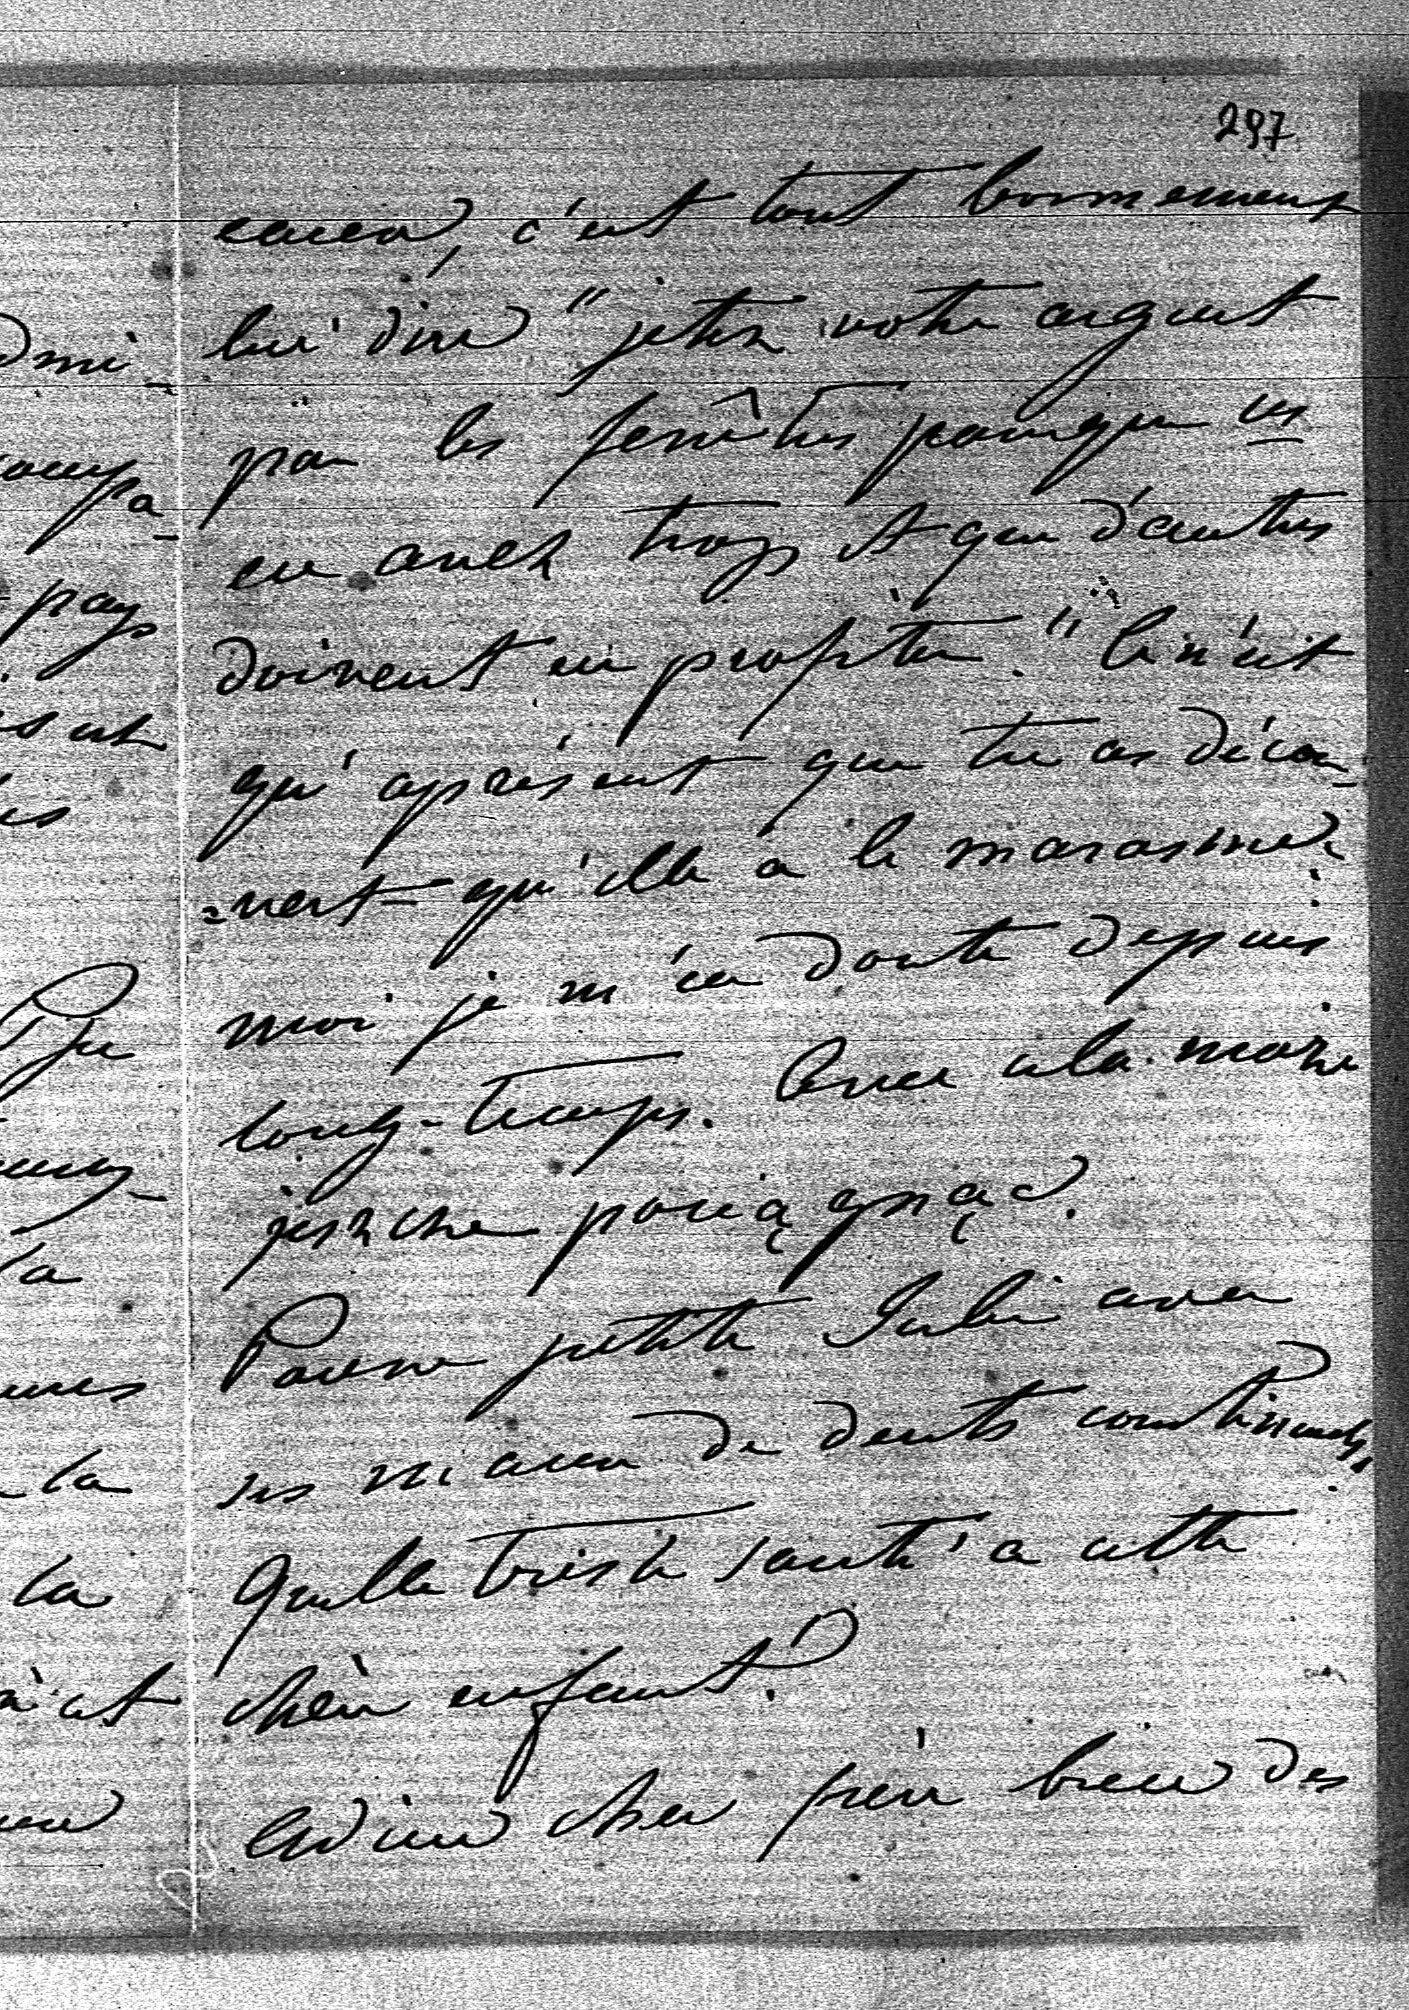 297
, c'est tout bonnement
lui dire " jetez votre argent
par les fenêtres parcque vs
en avez trop et que d'autres
doivent en profiter." Ce n'est
qu'apresent que tu as décou-
=vert qu'elle a le marasme
moi je m'en doute depuis
long-temps. a la mort
Pauvre petite Julie avec
ses maux de dents continuels.
Quelle triste santé a cette
chère enfant!
Adieu cher frère bien des
dmi-
pa-
pays
la
la
la